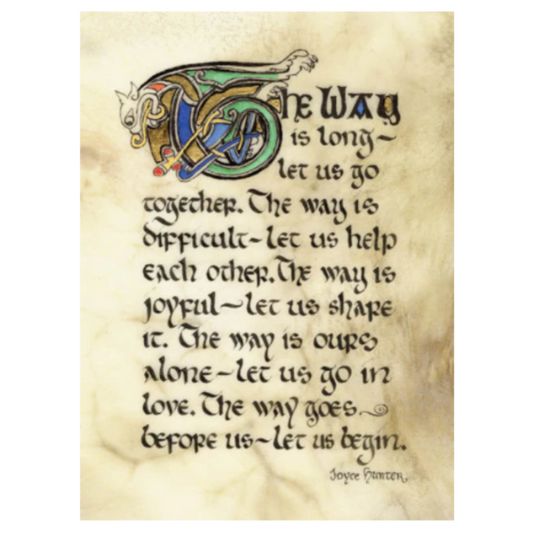 The Way
is long~
let us go
together. The way is
difficult~let us help
each other. The way is
joyful~let us share
it. The way is ours
alone~let us go in
love. The way goes
before us~let us begin.
Joyce Hunter.